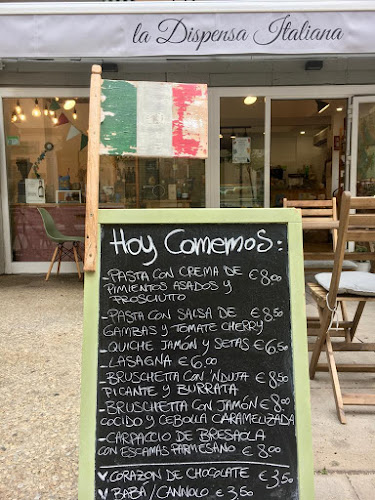 la Dispensa Italiana
Hoy Comemos:
-PASTA CON CREMA DE €8,00
PIMIENTOS ASADOS Y
PROSCIUTTO
-PASTA CON SALSA DE €8,50
GAMBAS Y TOMATE CHERRY
-QUICHE JAMÓN Y SETAS €6,50
-LASAGNA €6,00
-BRUSCHETTA CON 'NDUJA €8,50
PICANTE Y BURRATA
-BRUSCHETTA CON JAMÓN €8,00
COCIDO Y CEBOLLA CARAMELIZADA
-CARPACCIO DE BRESAOLA
CON ESCAMAS PARMESANO €8,00
CORAZON DE CHOCOLATE €3,50
BABÀ/CANNOLO €3,50